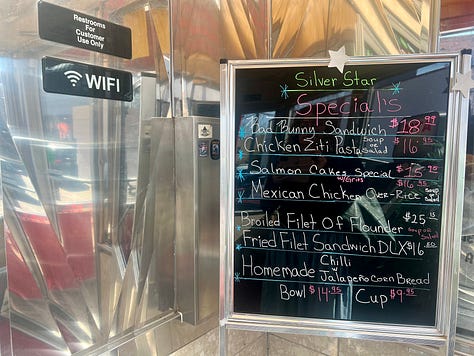 Restrooms
For
Customer
Use Only
WIFI
Silver Star
Specials
Bad Bunny Sandwich $18.99
Chicken Ziti Pasta Soup or Salad $16.95
Salmon Cakes Special $15.95
w/Grits
Mexican Chicken Over-Rice $16.95 Soup or Salad
Broiled Filet Of Flounder $25
Soup or Salad
Fried Filet Sandwich DLX $16
Homemade Chilli
w Jalapeño Corn Bread
Bowl $14.95 Cup $9.95